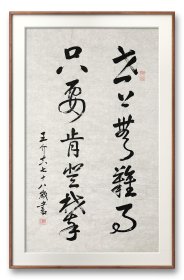 世上無難事
只要肯登攀
王介六七十八歲書